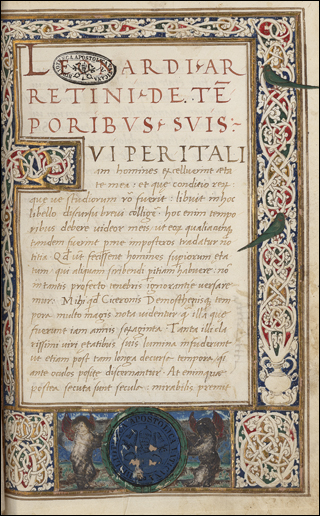 LEONARDI AR
RETINI DE TĒ
PORIBUS SUIS
QVI PER ITALI
am homines excelluerint ęta
te mea: et quę conditio rerū
quę ve studiorum rō fuerit: libuit in hoc
libello discursu brevi collige. hoc enim tempo
ribus debere videor meis, ut eoꝝ qualiacūq
tandem fuerint p me imposteros tradatur no
titia. Qd ut fecissent homines supiorum eta
tum, qui aliquam scribendi pitiam habuere: nō
in tantis profecto tenebris ignorantię versare
mur. Mihi qd Ciceronis Demosthenisq tem
pora multo magis nota videntur q illa quę
fuerunt iam annis sexaginta. Tanta illi cla
rissimi viri etatibus suis lumina infuderunt
ut etiam post tam longa decursa tempora, q̄si
ante oculos posite discernantur. At enim quę
postea secuta sunt secula: mirabilis premit